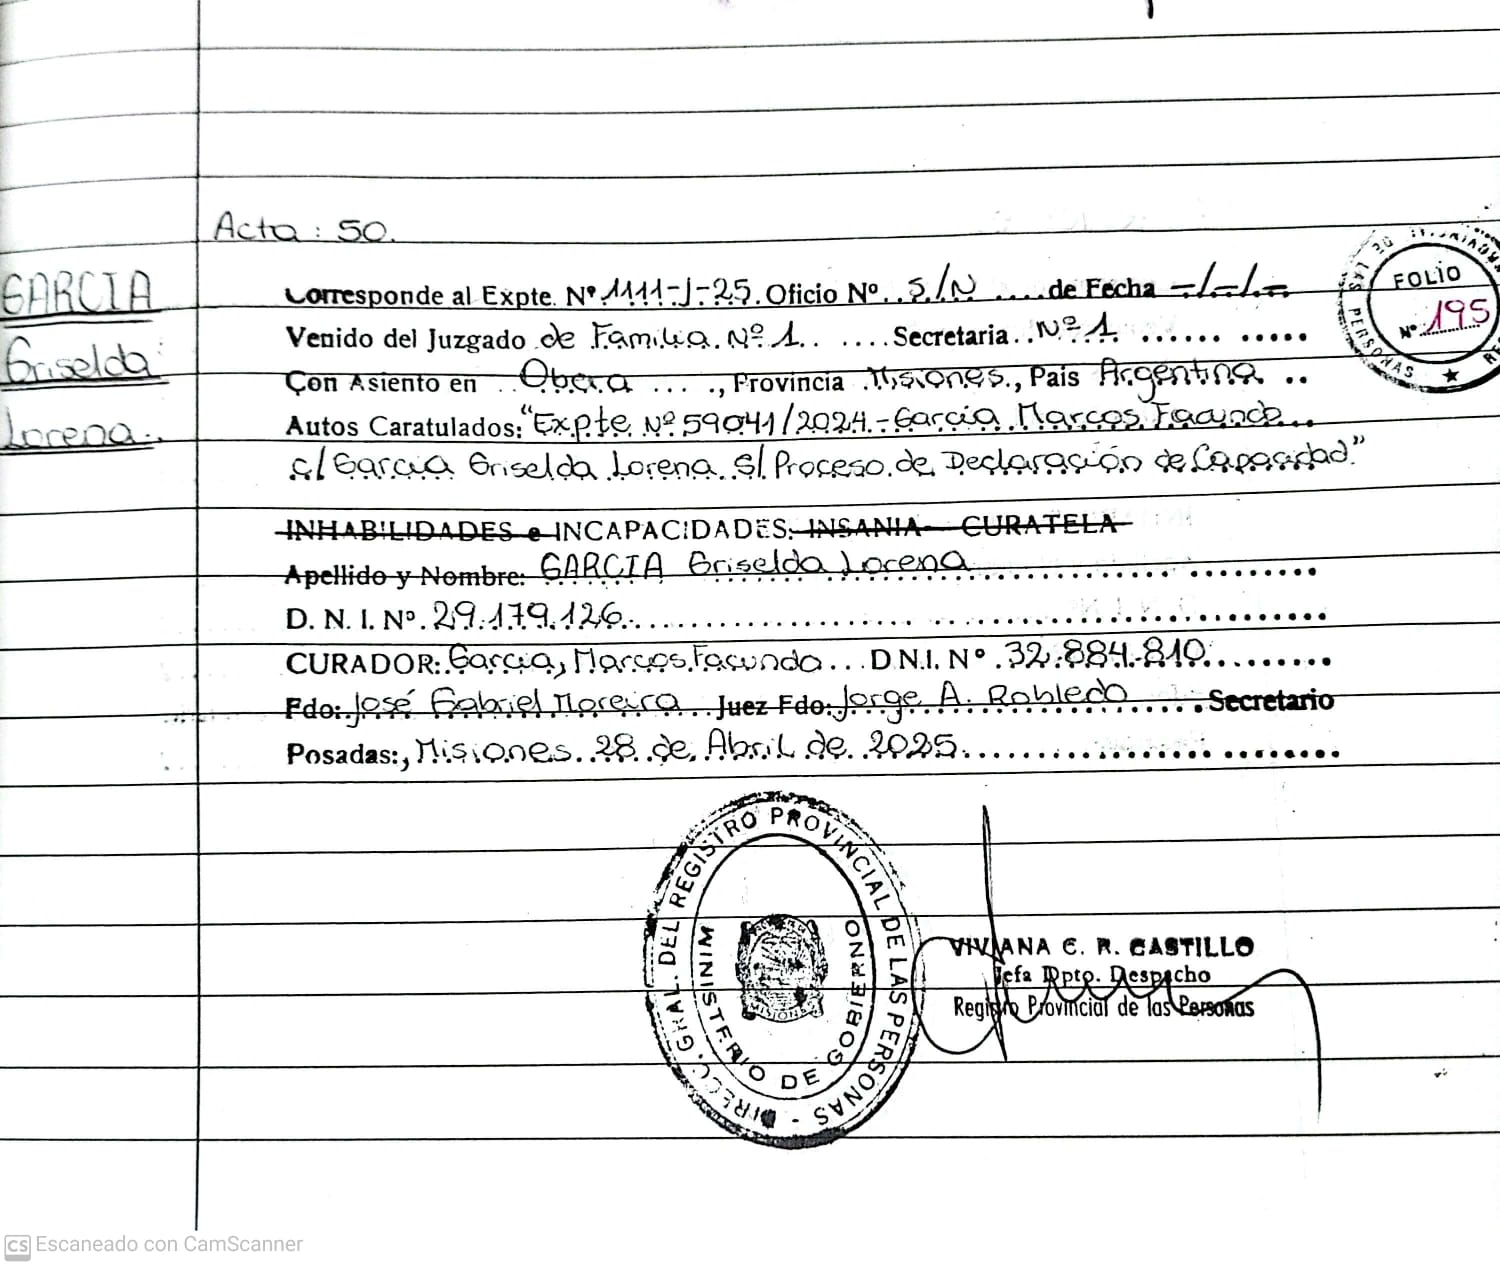 Acta: 50.
GARCIA
Griselda
Lorena.
Corresponde al Expte. Nº 1111-J-25. Oficio Nº..S/N.....de Fecha -/-/-
Venido del Juzgado de Familia. Nº 1.. ....Secretaria..Nº 1. ...... .....
Con Asiento en ..Oberá... ..., Provincia .Misiones., País Argentina ..
Autos Caratulados: "Expte. Nº 59041/2024.-Garcia Marcos Facundo...
c/ Garcia Griselda Lorena. S/ Proceso de Declaración de Capacidad."
INHABILIDADES e INCAPACIDADES: INSANIA CURATELA
Apellido y Nombre: GARCIA Griselda Lorena
D. N. I. Nº. 29.179.126.
CURADOR: Garcia, Marcos Facundo... D.N.I. Nº. 32.884.810.
Fdo: José Gabriel Moreira... Juez Fdo: Jorge A. Robledo....Secretario
Posadas:, Misiones. 28 de Abril de 2025.
FOLIO
Nº 195
PERSONAS
DIRECC. GRAL. DEL REGISTRO PROVINCIAL DE LAS PERSONAS -
MINISTERIO DE GOBIERNO
MISIONES
VIVIANA C. R. CASTILLO
Jefa Dpto. Despacho
Registro Provincial de las Personas
CS Escaneado con CamScanner